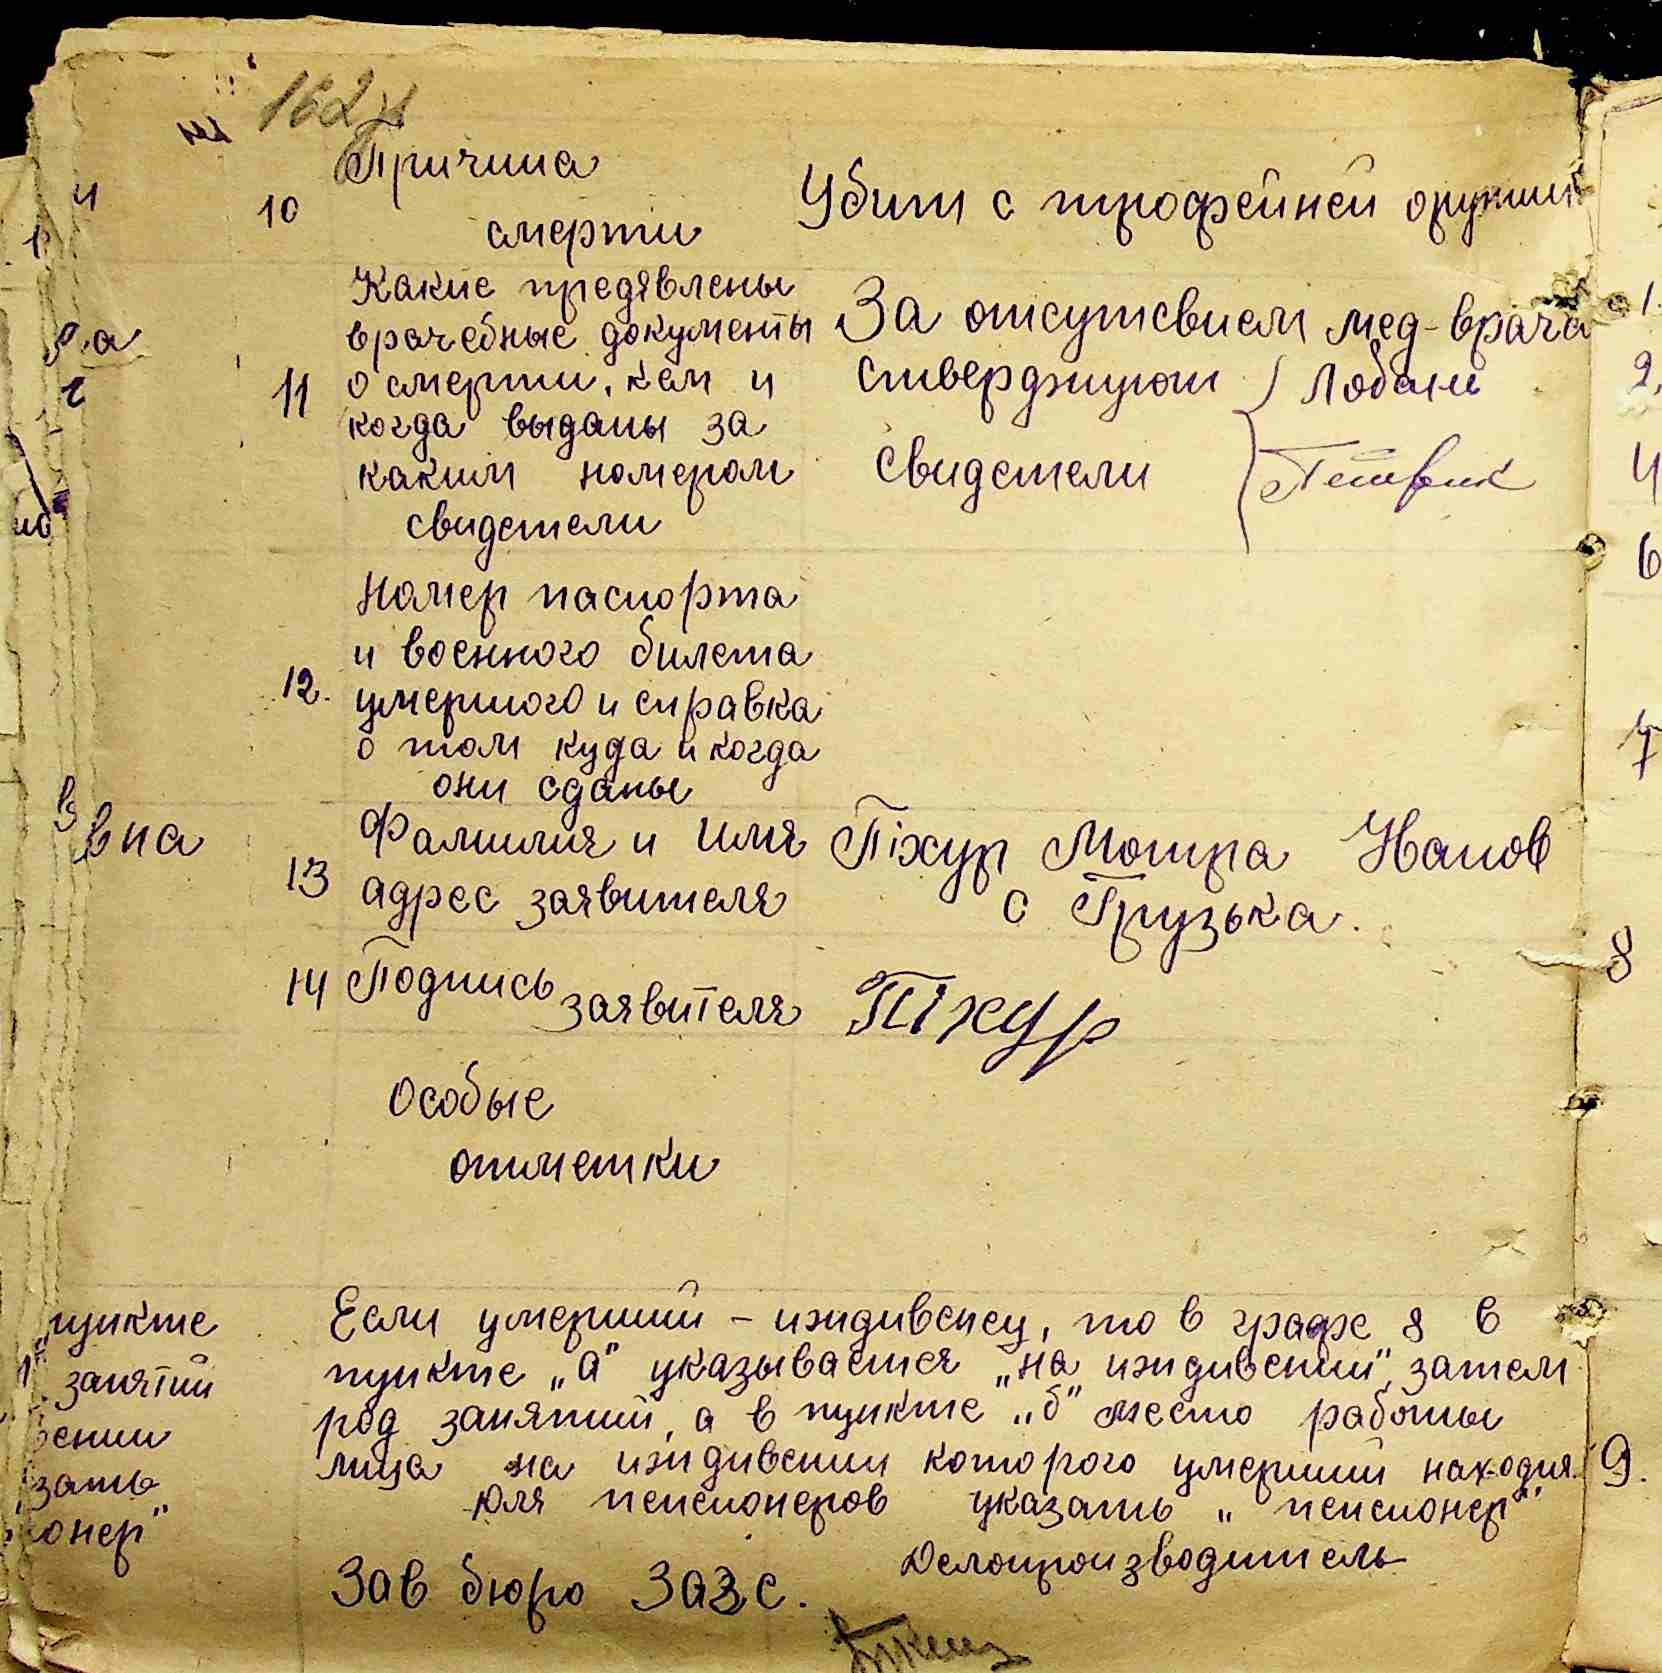 162
Причина
10
смерти
Убит с трофейней оружии
Какие предявлены
врачебные документы
11 о смерти, кем и
когда выданы за
каким номером
свидетели
За отсутсвием мед-врача
стверджуют Лобань
свидетели
Номер паспорта
и военного билета
12. умершого и справка
о том куда и когда
они сданы
вна
13 Фамилия и имя
адрес заявителя
Піхур Мотра Иванов
с Грузька.
14 Подпись заявителя
Піхур
Особые
отметки
пункте
занятий
ении
зать
онер"
Если умерший - иждивенец, то в графе 8 в
пункте „а" указывается „на иждивении", затем
род занятий, а в пункте „б" место работы
лица на иждивении которого умерший находил.
Для пенсионеров указать „пенсионер"
Делопроизводитель
Зав бюро Загс.
1.
2.
4
6
7
8
9.